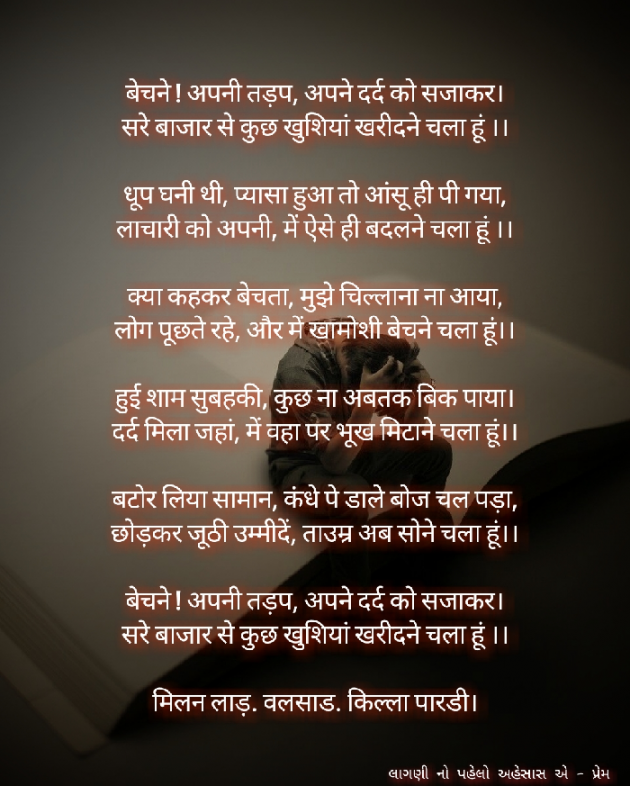 बेचने ! अपनी तड़प, अपने दर्द को सजाकर।
सरे बाजार से कुछ खुशियां खरीदने चला हूं ।।
धूप घनी थी, प्यासा हुआ तो आंसू ही पी गया,
लाचारी को अपनी, में ऐसे ही बदलने चला हूं ।।
क्या कहकर बेचता, मुझे चिल्लाना ना आया,
लोग पूछते रहे, और में खामोशी बेचने चला हूं।।
हुई शाम सुबहकी, कुछ ना अबतक बिक पाया।
दर्द मिला जहां, में वहा पर भूख मिटाने चला हूं।।
बटोर लिया सामान, कंधे पे डाले बोज चल पड़ा,
छोड़कर जूठी उम्मीदें, ताउम्र अब सोने चला हूं।।
बेचने ! अपनी तड़प, अपने दर्द को सजाकर।
सरे बाजार से कुछ खुशियां खरीदने चला हूं ।।
मिलन लाड़. वलसाड. किल्ला पारडी।
લાગણી નો પહેલો અહેસાસ એ - પ્રેમ